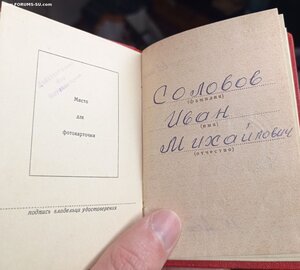 www.FORUMS-SU.com
Место
для
фотокарточки
подпись владельца удостоверения
Соловов
(фамилия)
Иван
(имя)
Михайлович
(отчество)